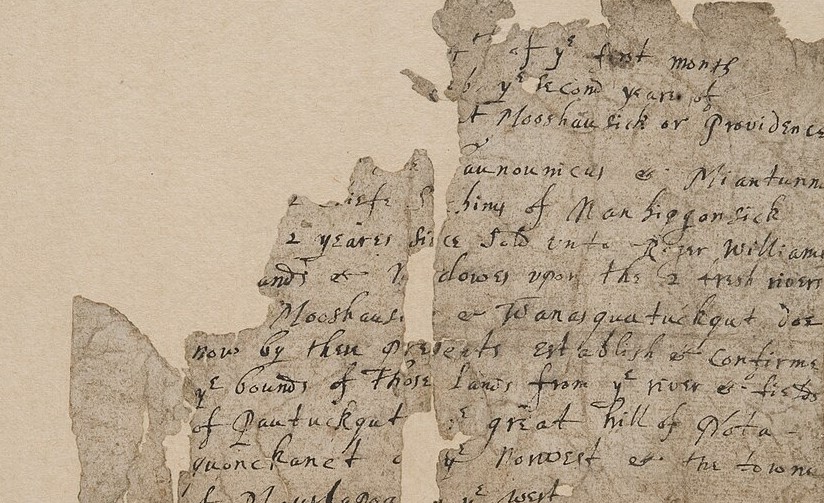 of yᵉ first month
yᵉ second yeare of
t Mooshausick or Providence
aunounicus & Miantunn
2 iefe S hims of Nanhiggonsick
2 yeares since Sold unto Roger Williams
ands & dowes upon the 2 fresh rivers
Mooshaus & Wanasquatuckqut doe
now by these presents establish & Confirme
yᵉ bounds of Those lands from yᵉ river & fields
of Pautuckqut yᵉ great hill of Nota-
quonckanet yᵉ Norwest & the towne
yᵉ west